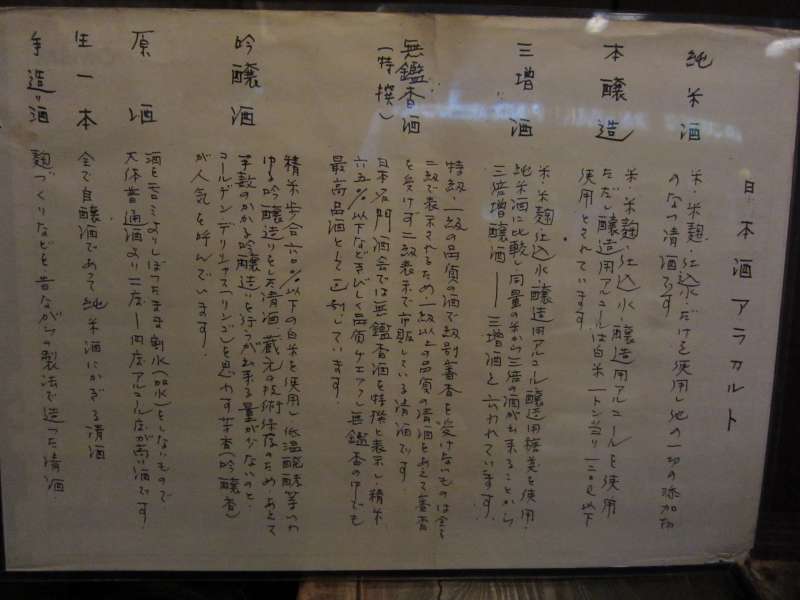 日本酒アラカルト
純米酒
米・米麹・仕込水だけを使用し他の一切の添加物
のない清酒です。
本醸造
米・米麹・仕込水・醸造用アルコールを使用
ただし醸造用アルコールは白米一トン当り一二〇ℓ以下
使用とされています。
三増酒
米・米麹・仕込水・醸造用アルコール・醸造用糖類を使用・
純米酒に比較し同量の米から三倍の酒が出来ることから
三倍増醸酒――三増酒と云われています。
無鑑査酒
(特撰)
特級・一級の品質の酒で級別審査を受けないものは全て
二級で表示されるため一級以上の品質の清酒をあえて審査
を受けず二級表示で市販している清酒です。
日本名門酒会では無鑑査酒を特撰と表示し・精米
六五%以下などきびしく品質チェックし無鑑査の中でも
最高品酒として区別しています。
吟醸酒
精米歩合六〇%以下の白米を使用し低温醗酵等いわ
ゆる吟醸造りをした清酒 蔵元の技術保存のため・あえて
手数のかかる吟醸造りを行うが出来る量が少ないのと、
ゴールデンデリシャス(リンゴ)を思わす芳香(吟醸香)
が人気を呼んでいます。
原酒
酒を しぼったまま割水(加水)をしないもので
大体普通酒より二度〜四度アルコール度が高い酒です。
生一本
全て自醸酒であって純米酒にかぎる清酒
手造り酒
麹づくりなどを昔ながらの製法で造った清酒